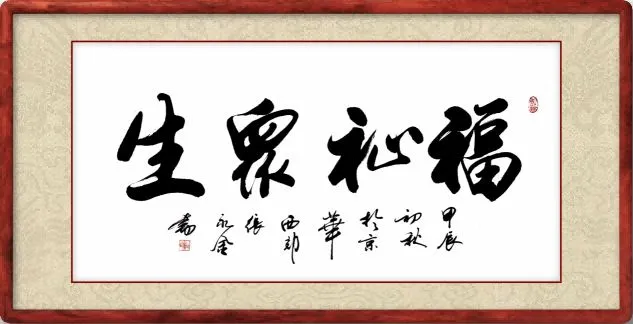 福祉眾生
甲辰
初秋
於京
華
西郊
張
永金
書